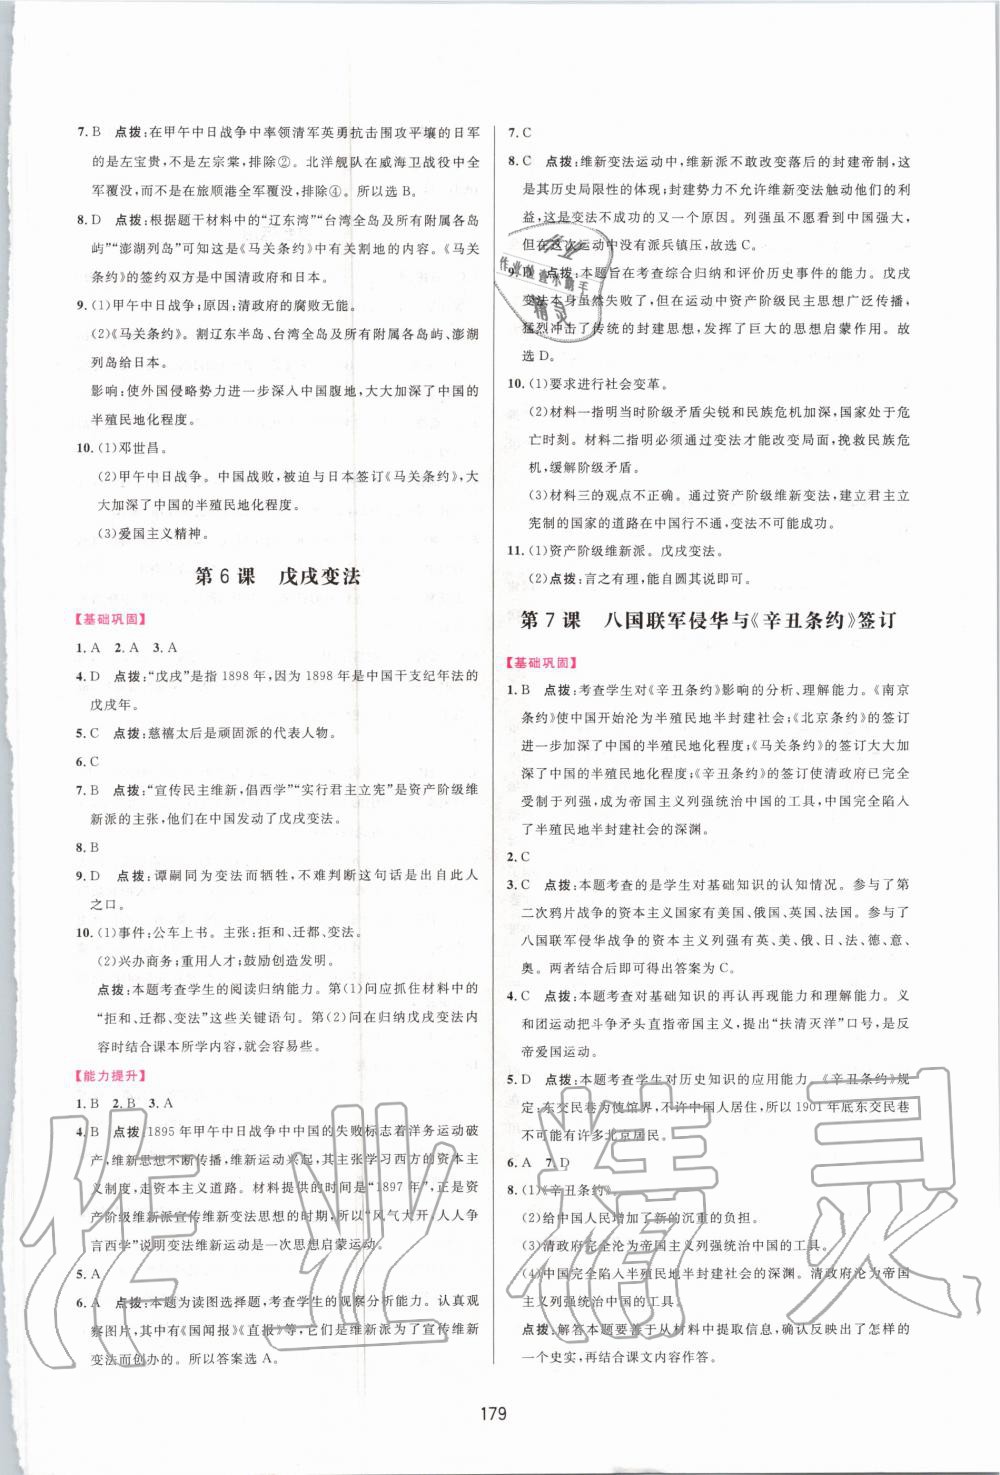 7. B　点拨:在甲午中日战争中率领清军英勇抗击围攻平壤的日军
的是左宝贵,不是左宗棠,排除②。北洋舰队在威海卫战役中全
军覆没,而不是在旅顺港全军覆没,排除④。所以选 B。
8. D　点拨:根据题干材料中的“辽东湾”“台湾全岛及所有附属各岛
屿”“澎湖列岛”可知这是《马关条约》中有关割地的内容。《马关
条约》的签约双方是中国清政府和日本。
9. (1)甲午中日战争;原因:清政府的腐败无能。
(2)《马关条约》。割辽东半岛、台湾全岛及所有附属各岛屿、澎湖
列岛给日本。
影响:使外国侵略势力进一步深入中国腹地,大大加深了中国的
半殖民地化程度。
10. (1)邓世昌。
(2)甲午中日战争。中国战败,被迫与日本签订《马关条约》,大
大加深了中国的半殖民地化程度。
(3)爱国主义精神。
第 6 课　戊戌变法
【基础巩固】
1. A　2. A　3. A
4. D　点拨:“戊戌”是指 1898 年,因为 1898 年是中国干支纪年法的
戊戌年。
5. C　点拨:慈禧太后是顽固派的代表人物。
6. C
7. B　点拨:“宣传民主维新,倡西学”“实行君主立宪”是资产阶级维
新派的主张,他们在中国发动了戊戌变法。
8. B
9. D　点拨:谭嗣同为变法而牺牲,不难判断这句话是出自此人
之口。
10. (1)事件:公车上书。主张:拒和、迁都、变法。
(2)兴办商务;重用人才;鼓励创造发明。
点拨:本题考查学生的阅读归纳能力。第(1)问应抓住材料中的
“拒和、迁都、变法”这些关键语句。第(2)问在归纳戊戌变法内
容时结合课本所学内容,就会容易些。
【能力提升】
1. B　2. B　3. A
4. B　点拨:1895 年甲午中日战争中中国的失败标志着洋务运动破
产,维新思想不断传播,维新运动兴起,其主张学习西方的资本主
义制度,走资本主义道路。材料提供的时间是“1897 年”,正是资
产阶级维新派宣传维新变法思想的时期,所以“风气大开,人人争
言西学”说明变法维新运动是一次思想启蒙运动。
5. A
6. A　点拨:本题为读图选择题,考查学生的观察分析能力。认真观
察图片,其中有《国闻报》《直报》等,它们是维新派为了宣传维新
变法而创办的。所以答案选 A。
7. C
8. C　点拨:维新变法运动中,维新派不敢改变落后的封建帝制,这
是其历史局限性的体现;封建势力不允许维新变法触动他们的利
益,这是变法不成功的又一个原因。列强虽不愿看到中国强大,
但在这次运动中没有派兵镇压,故选 C。
9. D　点拨:本题旨在考查综合归纳和评价历史事件的能力。戊戌
变法本身虽然失败了,但在运动中资产阶级民主思想广泛传播,
猛烈冲击了传统的封建思想,发挥了巨大的思想启蒙作用。故
选 D。
10. (1)要求进行社会变革。
(2)材料一指明当时阶级矛盾尖锐和民族危机加深,国家处于危
亡时刻。材料二指明必须通过变法才能改变局面,挽救民族危
机,缓解阶级矛盾。
(3)材料三的观点不正确。通过资产阶级维新变法,建立君主立
宪制的国家的道路在中国行不通,变法不可能成功。
11. (1)资产阶级维新派。戊戌变法。
(2)点拨:言之有理,能自圆其说即可。
第 7 课　八国联军侵华与《辛丑条约》签订
【基础巩固】
1. B　点拨:考查学生对《辛丑条约》影响的分析、理解能力。《南京
条约》使中国开始沦为半殖民地半封建社会;《北京条约》的签订
进一步加深了中国的半殖民地化程度;《马关条约》的签订大大加
深了中国的半殖民地化程度;《辛丑条约》的签订使清政府已完全
受制于列强,成为帝国主义列强统治中国的工具,中国完全陷入
了半殖民地半封建社会的深渊。
2. C
3. C　点拨:本题考查的是学生对基础知识的认知情况。参与了第
二次鸦片战争的资本主义国家有美国、俄国、英国、法国。参与了
八国联军侵华战争的资本主义列强有英、美、俄、日、法、德、意、
奥。两者结合后即可得出答案为 C。
4. C　点拨:本题考查对基础知识的再认再现能力和理解能力。义
和团运动把斗争矛头直指帝国主义,提出“扶清灭洋”口号,是反
帝爱国运动。
5. D　点拨:本题考查学生对历史知识的应用能力。《辛丑条约》规
定:东交民巷为使馆界,不许中国人居住,所以 1901 年底东交民巷
不可能有许多北京居民。
6. A　7. D
8. (1)《辛丑条约》。
(2)给中国人民增加了新的沉重的负担。
(3)清政府完全沦为帝国主义列强统治中国的工具。
(4)中国完全陷入半殖民地半封建社会的深渊。清政府沦为帝国
主义列强统治中国的工具。
点拨:解答本题要善于从材料中提取信息,确认反映出了怎样的
一个史实,再结合课文内容作答。
179
作业
作业检查小助手
精灵
作业精灵